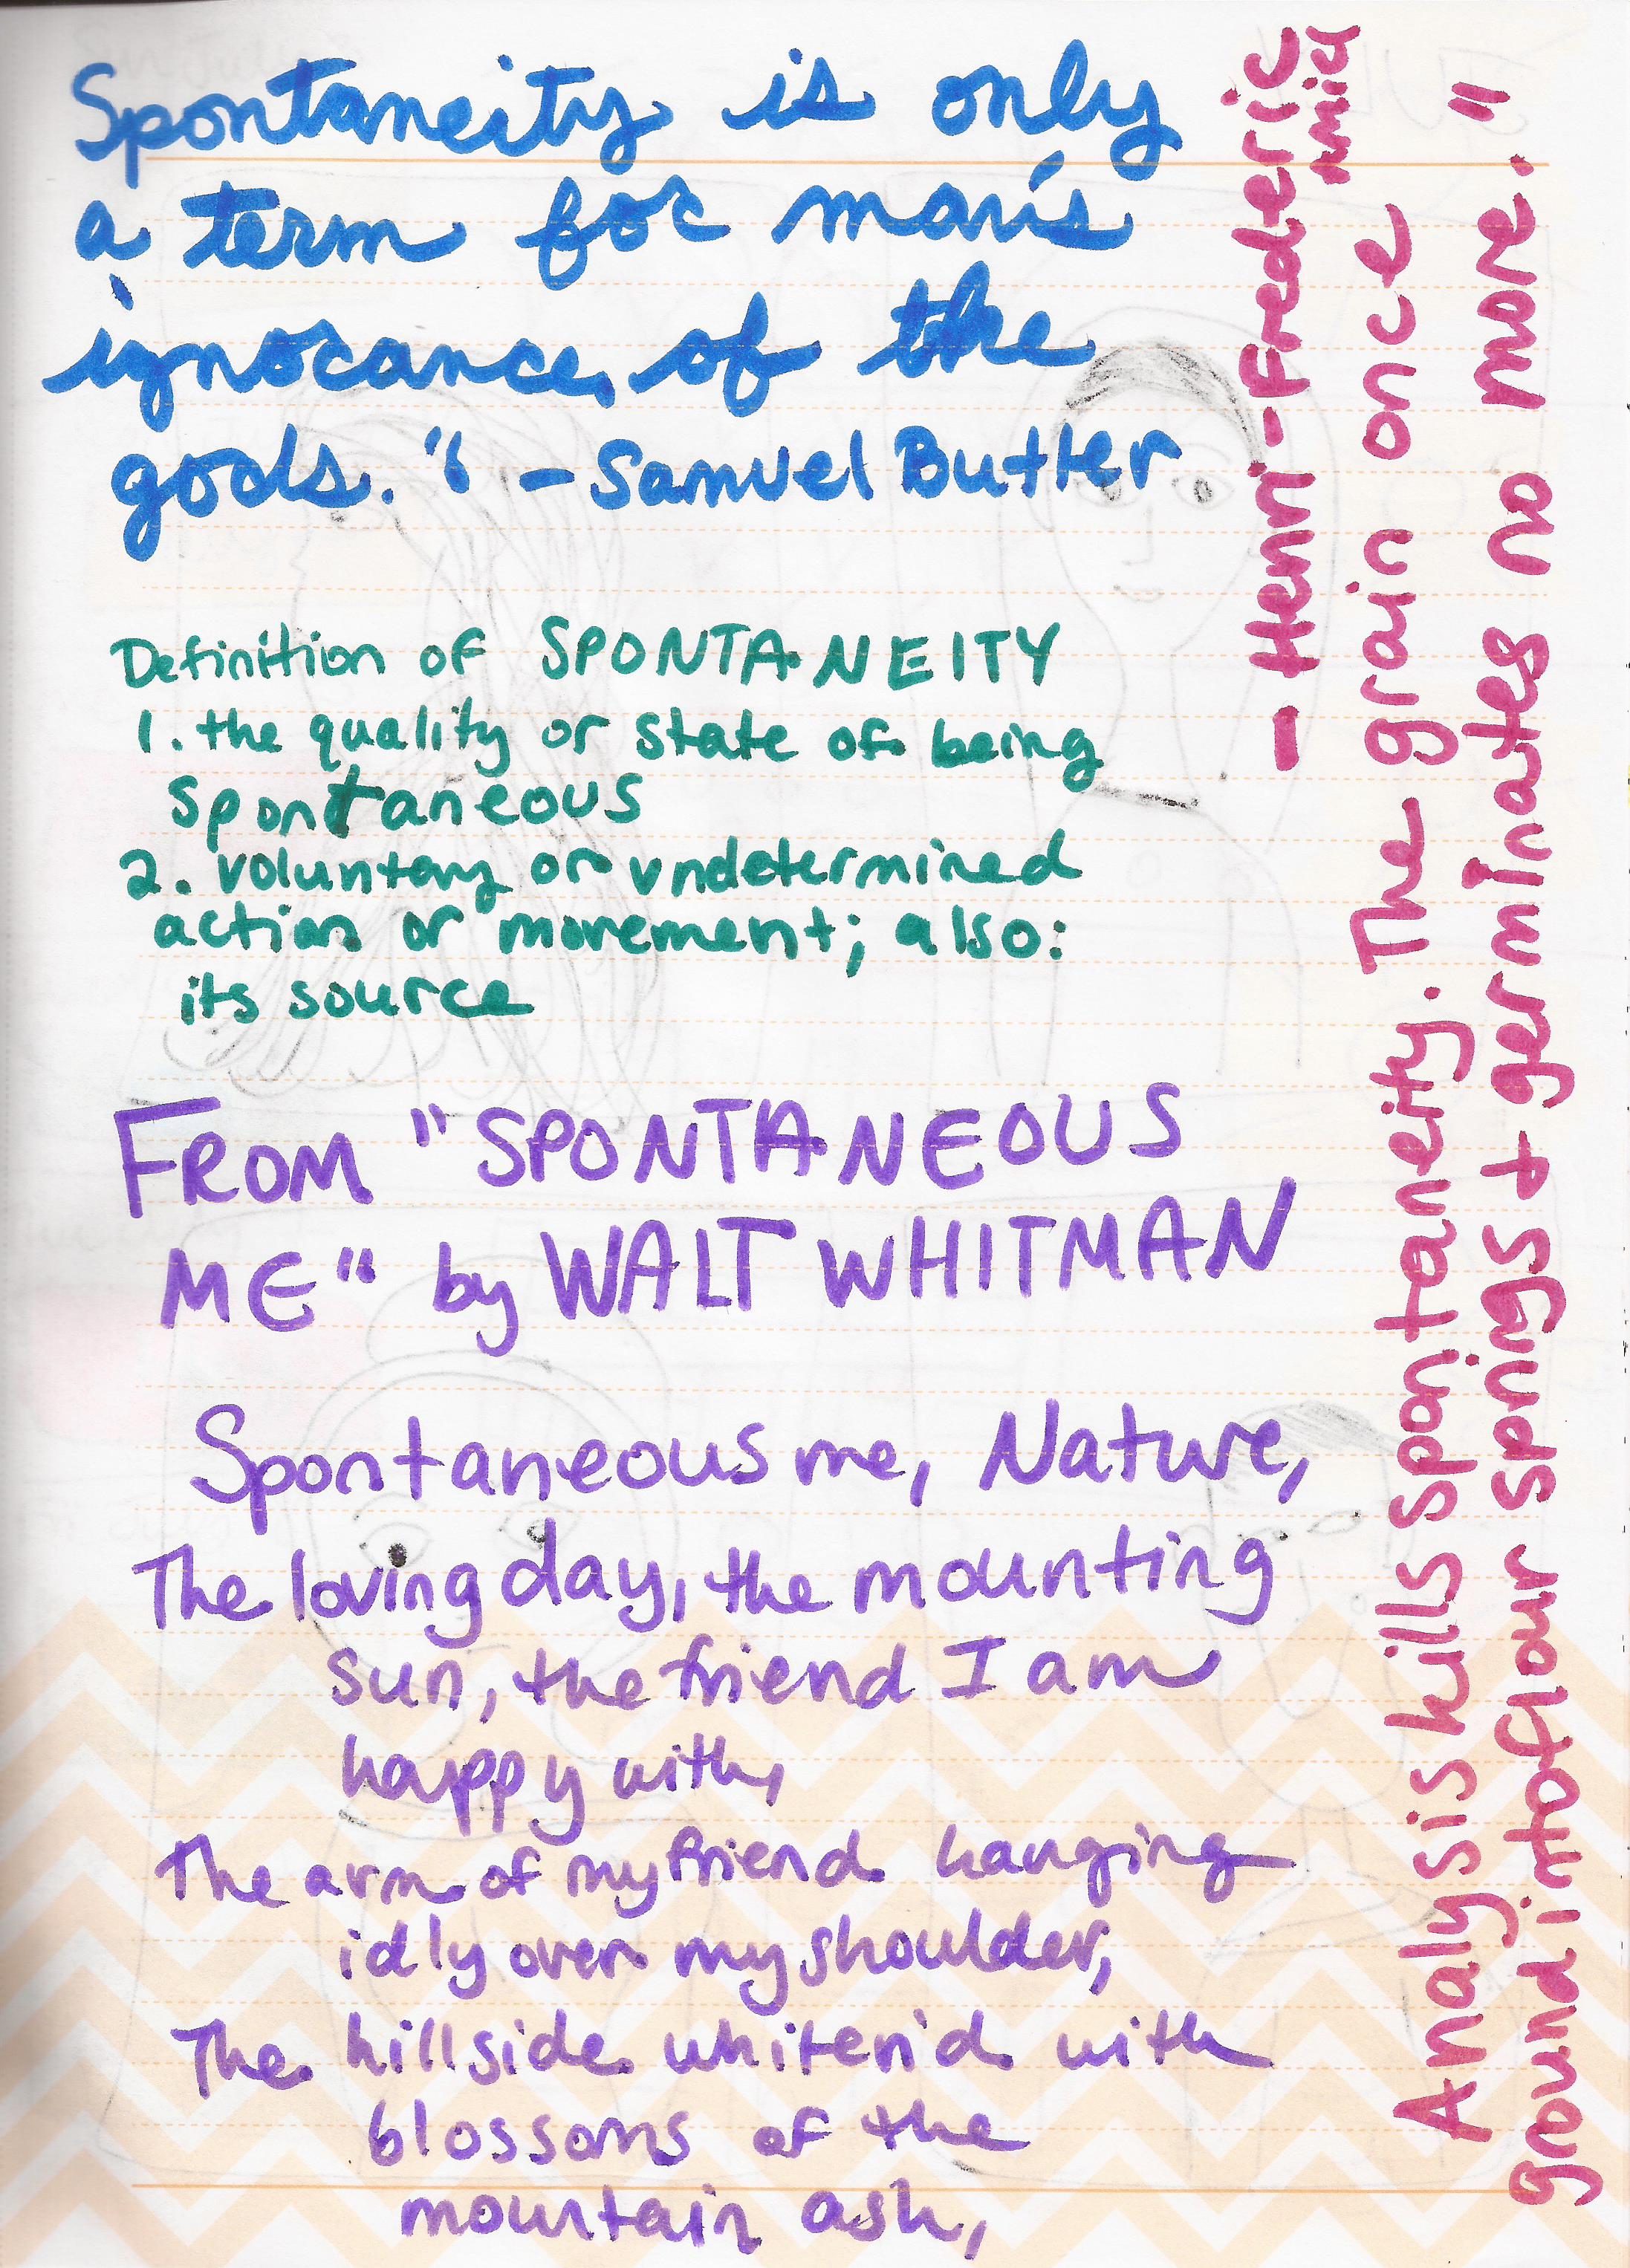 Spontaneity is only
a term for man's
ignorance of the
gods." - Samuel Butler
Definition of SPONTANEITY
1. the quality or state of being
spontaneous
2. voluntary or undetermined
action or movement; also:
its source
FROM "SPONTANEOUS
ME" by WALT WHITMAN
Spontaneous me, Nature,
The loving day, the mounting
sun, the friend I am
happy with,
The arm of my friend hanging
idly over my shoulder,
The hillside whiten'd with
blossoms of the
mountain ash,
Analysis kills spontaneity. The grain once
ground into flour springs + germinates no more."
- Henri-Frederic